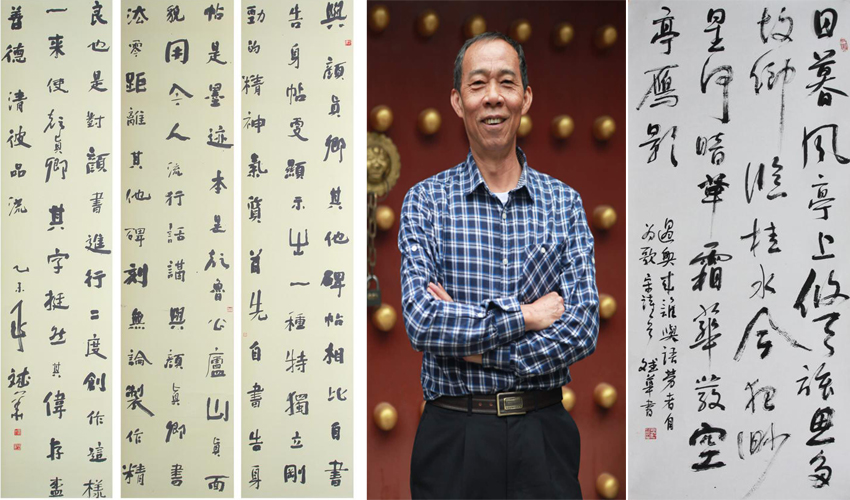 與顏真卿其他碑帖相比自書
告身帖更顯示出一種特獨立剛
勁的精神氣質首先自書告身
帖是墨迹本是於魯公廬山真面
貌用今人流行話講與顏真卿書
法零距離其他碑刻無論製作精
良也是對顏書進行二度創作這樣
一來使顏真卿其字挺然其偉存盛
善德清彼品流 乙未年 斌華
日暮風亭上悠悠旅思多
故鄉臨桂水今夜渺
星河暗草霜華發空
亭雁影
過興來誰與語勞者自
為歌 宋詩 斌華書